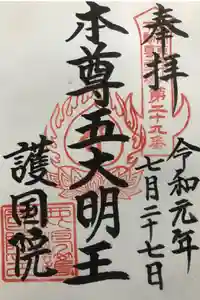 奉拝
第二十九番
令和元年
七月二十七日
本尊五大明王
護国院